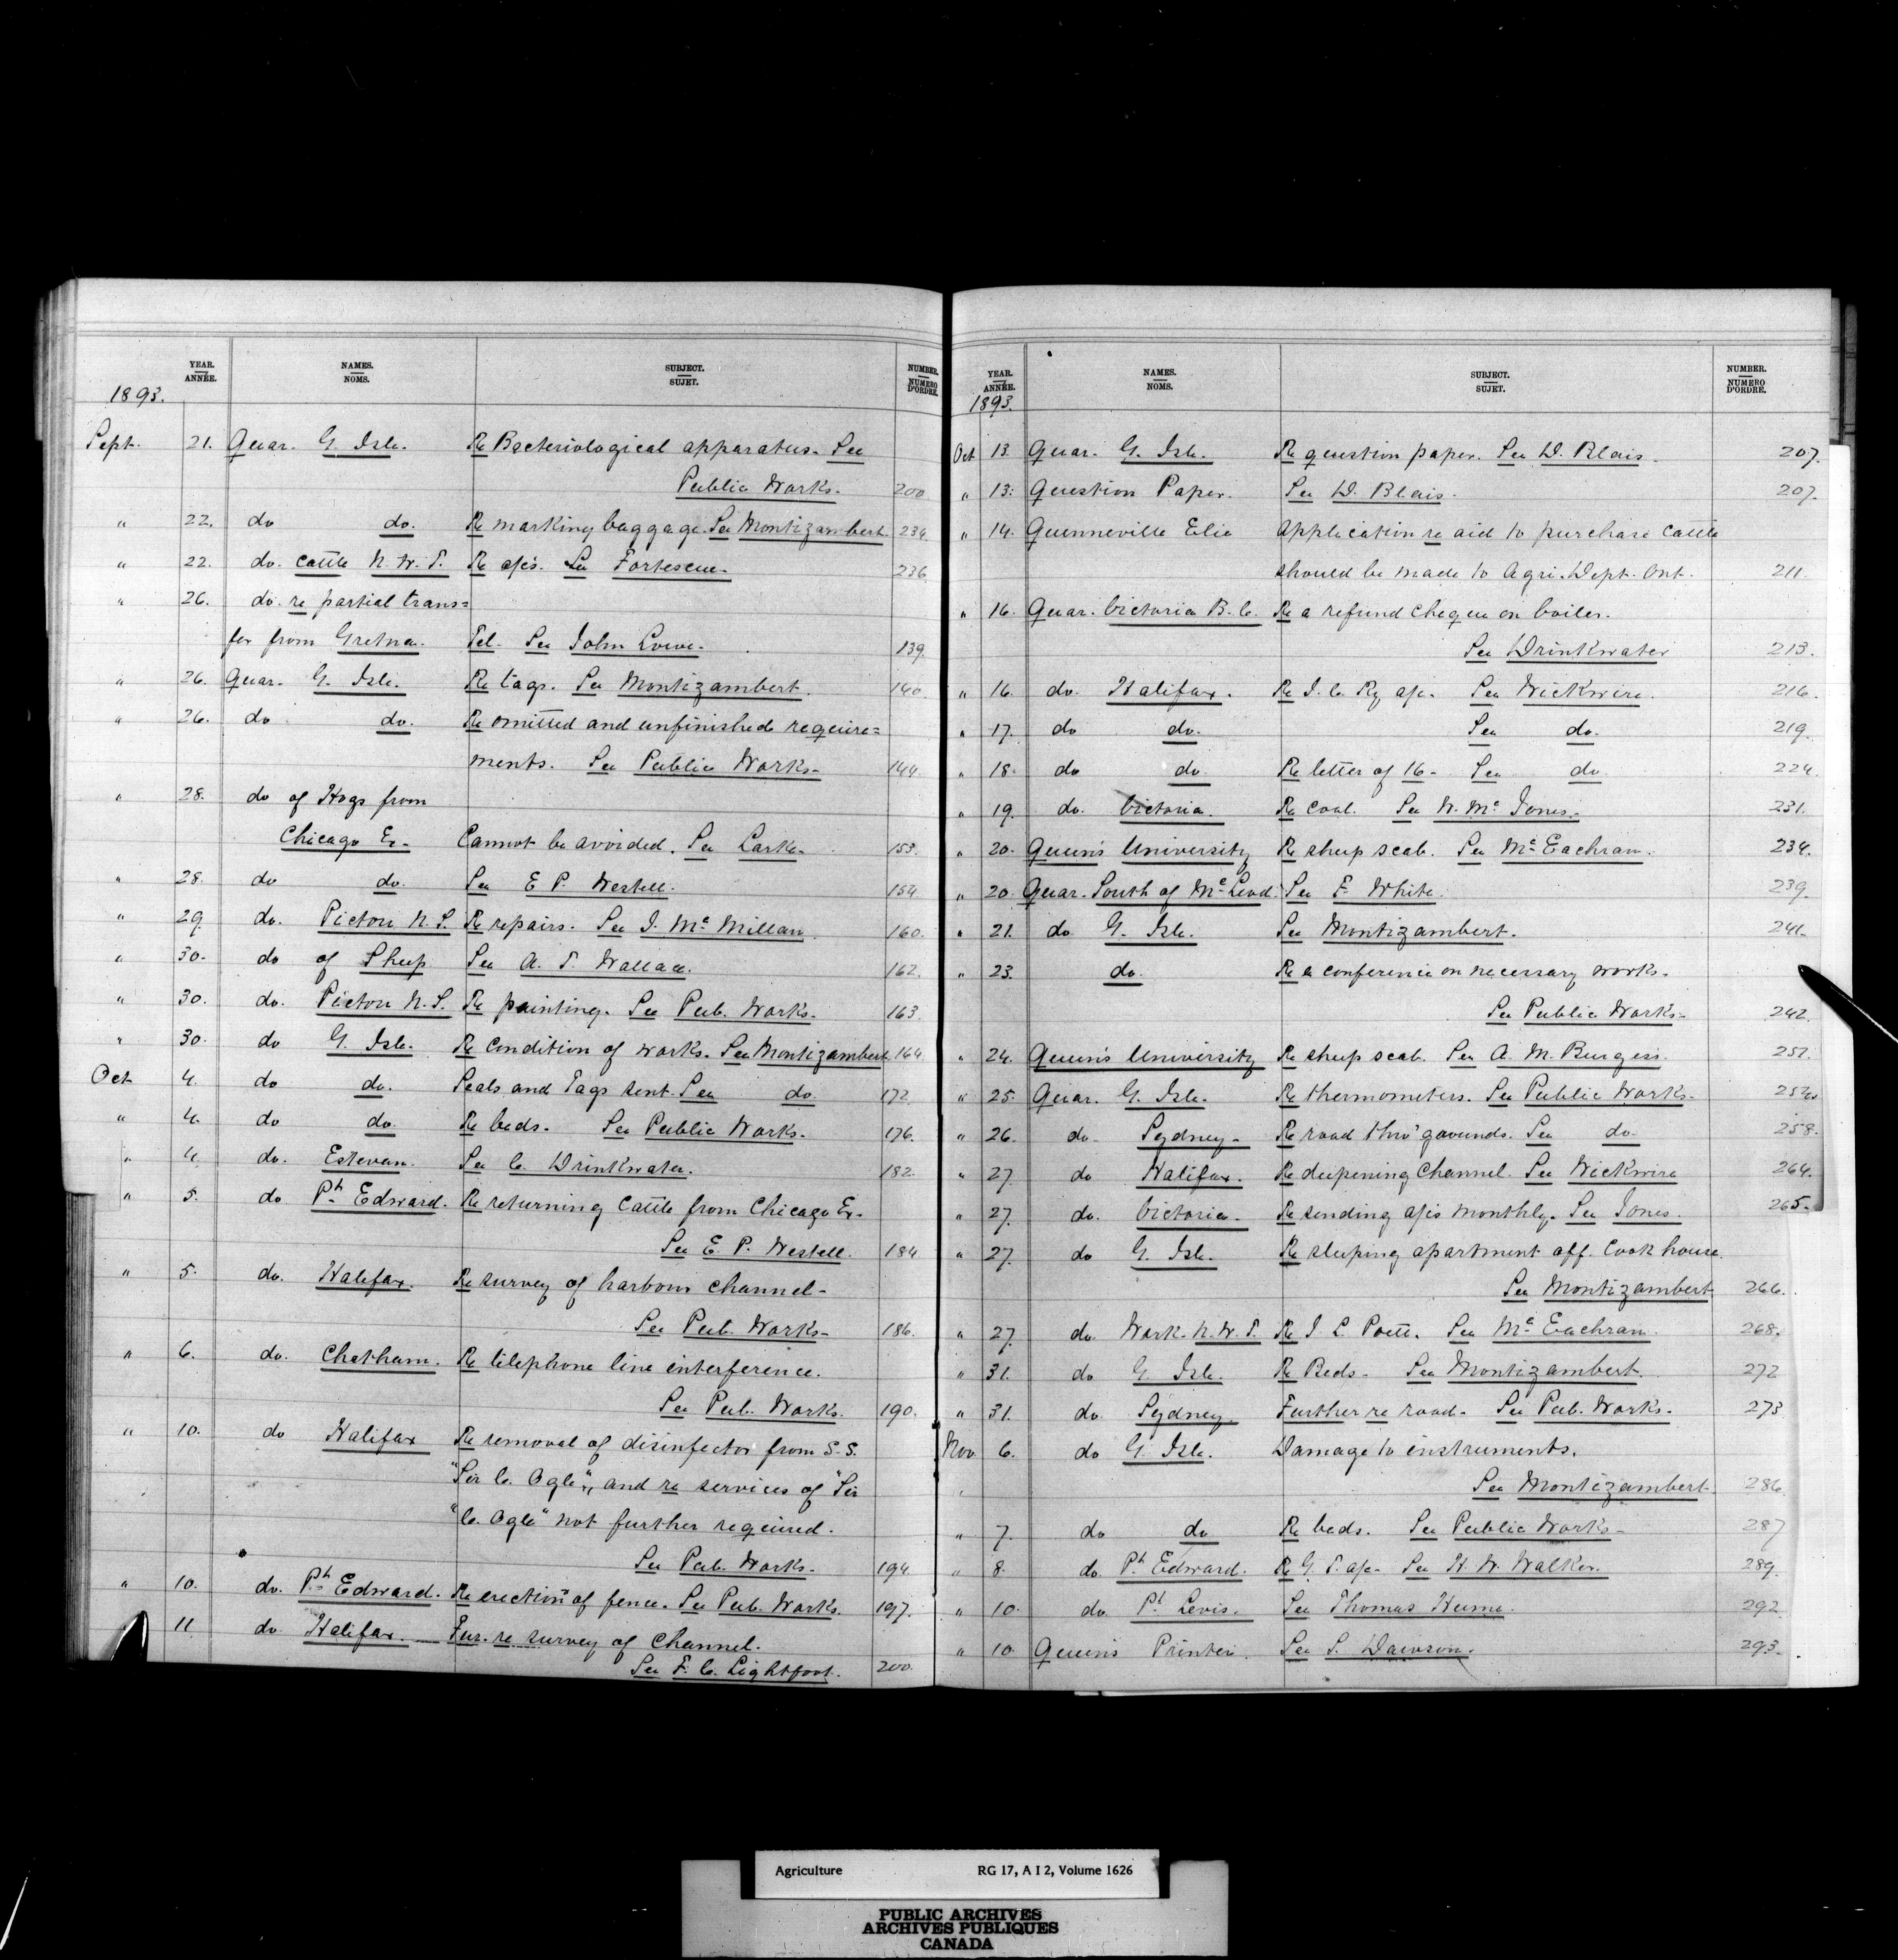 YEAR. ANNÉE. NAMES. NOMS. SUBJECT. SUJET. NUMBER. NUMÉRO D'ORDRE.
1893.
Sept. 21. Quar. G. Isle. Re Bacteriological apparatus. See
Public Works. 200
" 22. do do. Re marking baggage. See Montizambert.
" 22. do. Cattle N. W. T. Re a/cs. See Fortescue. 236
" 26. do. re partial trans=
fer from Gretna. Tel. See John Lowe. 139.
" 26. Quar. G. Isle. Re tags. See Montizambert. 140.
" 26. do do. Re omitted and unfinished require=
ments. See Public Works. 144.
" 28. do of Hogs from
Chicago Ex. Cannot be avoided. See Larke. 153.
" 28. do do. See E P. Westell. 154
" 29. do. Pictou N. S. Re repairs. See J. McMillan. 160.
" 30. do of Sheep See A. T. Wallace. 162.
" 30. do. Pictou N. S. Re painting. See Pub. Works. 163.
" 30. do G. Isle. Re condition of works. See Montizambert. 164.
Oct 4. do do. Seals and Tags sent. See do. 172.
" 4. do do. Re beds. See Public Works. 176.
" 4. do. Estevan. See C. Drinkwater. 182.
" 5. do Pt. Edward. Re returning Cattle from Chicago Ex.
See E. P. Westell. 184
" 5. do. Halifax. Re survey of harbour channel-
See Pub. Works- 186.
" 6. do. Chatham. Re telephone line interference.
See Pub. Works. 190.
" 10. do Halifax Re removal of disinfector from S. S.
"Sir C. Ogle", and re services of "Sir
"C. Ogle" not further required.
See Pub. Works. 194.
" 10. do. Pt. Edward. Re erection of fence. See Pub. Works. 197.
" 11. do. Halifax. Fur. re survey of Channel.
See F. C. Lightfoot. 200.
YEAR. ANNÉE. NAMES. NOMS. SUBJECT. SUJET. NUMBER. NUMÉRO D'ORDRE.
1893.
Oct 13. Quar. G. Isle. Re question paper. See D. Blais. 207.
" 13. Question Paper. See D. Blais. 207.
" 14. Quenneville Elie Application re aid to purchase Cattle
should be made to Agri. Dept. Ont. 211.
" 16. Quar. Victoria B. C. Re a refund cheque on boiler.
See Drinkwater 213.
" 16. do. Halifax. Re I. C. Ry a/c. See Wickwire. 216.
" 17. do do. See do. 219.
" 18. do do Re letter of 16- See do 224.
" 19. do. Victoria. Re coal. See W. Mc Jones. 231.
" 20. Queen's University Re sheep scab. See McEachran. 234.
" 20. Quar. South of McLeod See F. White. 239.
" 21. do G. Isle. See Montizambert. 241.
" 23. do. Re a conference on necessary works.
See Public Works- 242
" 24. Queen's University Re sheep scab. See A. M. Burgess.
" 25. Quar. G. Isle. Re thermometers. See Public Works.
" 26. do- Sydney- Re road thro' grounds. See do. 258.
" 27. do Halifax. Re deepening Channel. See Wickwire 264.
" 27. do. Victoria. Re sending a/cs monthly. See Jones. 265.
" 27. do G. Isle. Re sleeping apartment off. Cook house.
See Montizambert. 266.
" 27. do. Work. N. W. T. Re See McEachran. 268.
" 31. do G. Isle. Re Beds. See Montizambert. 272
" 31. do. Sydney. Further re road. See Pub. Works. 273
Nov. 6. do G. Isle. Damage to instruments.
" See Montizambert. 286.
" 7. do do Re beds. See Public Works- 287
" 8. do. Pt. Edward. Re G. T. a/c- See H. W. Walker. 289.
" 10. do. Pt. Levis. See Thomas Hume. 292.
" 10. Queen's Printer. See S. Dawson. 293.
Agriculture RG 17, A I 2, Volume 1626
PUBLIC ARCHIVES
ARCHIVES PUBLIQUES
CANADA